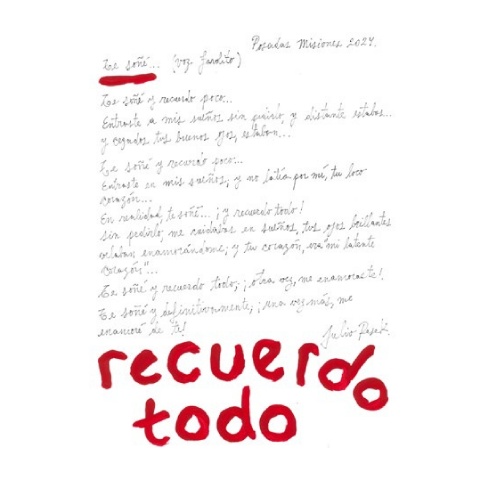 Posadas Misiones 2024.
Te soñé... (voz Garolito)
Te soñé y recuerdo poco...
Entraste a mis sueños sin pedirlo, y distante estabas...
y cegados tus buenos ojos, estaban...
Te soñé y recuerdo poco...
Entraste en mis sueños, y no latía por mí, tu loco
corazón...
En realidad, te soñé... ¡y recuerdo todo!
sin pedirlo, me cuidabas en sueños, tus ojos brillantes
estaban enamorándome; y tu corazón, era mi latente
corazón"...
Te soñé y recuerdo todo; ¡otra vez, me enamoraste!
Te soñé y definitivamente, ¡una vez más, me
enamoré de ti!
Julio
recuerdo
todo